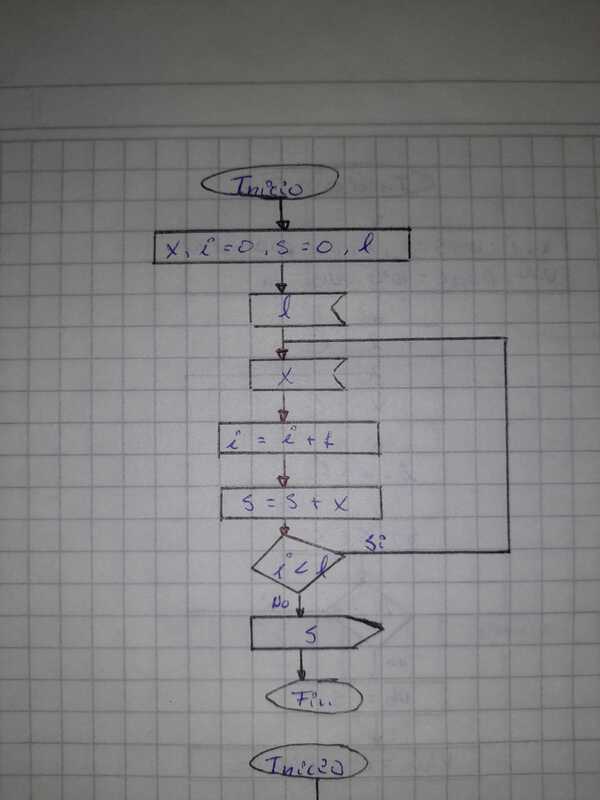 Inicio
x, i=0, s=0, l
l
x
i = i + 1
s = s + x
Si
i < l
No
s
Fin
Inicio